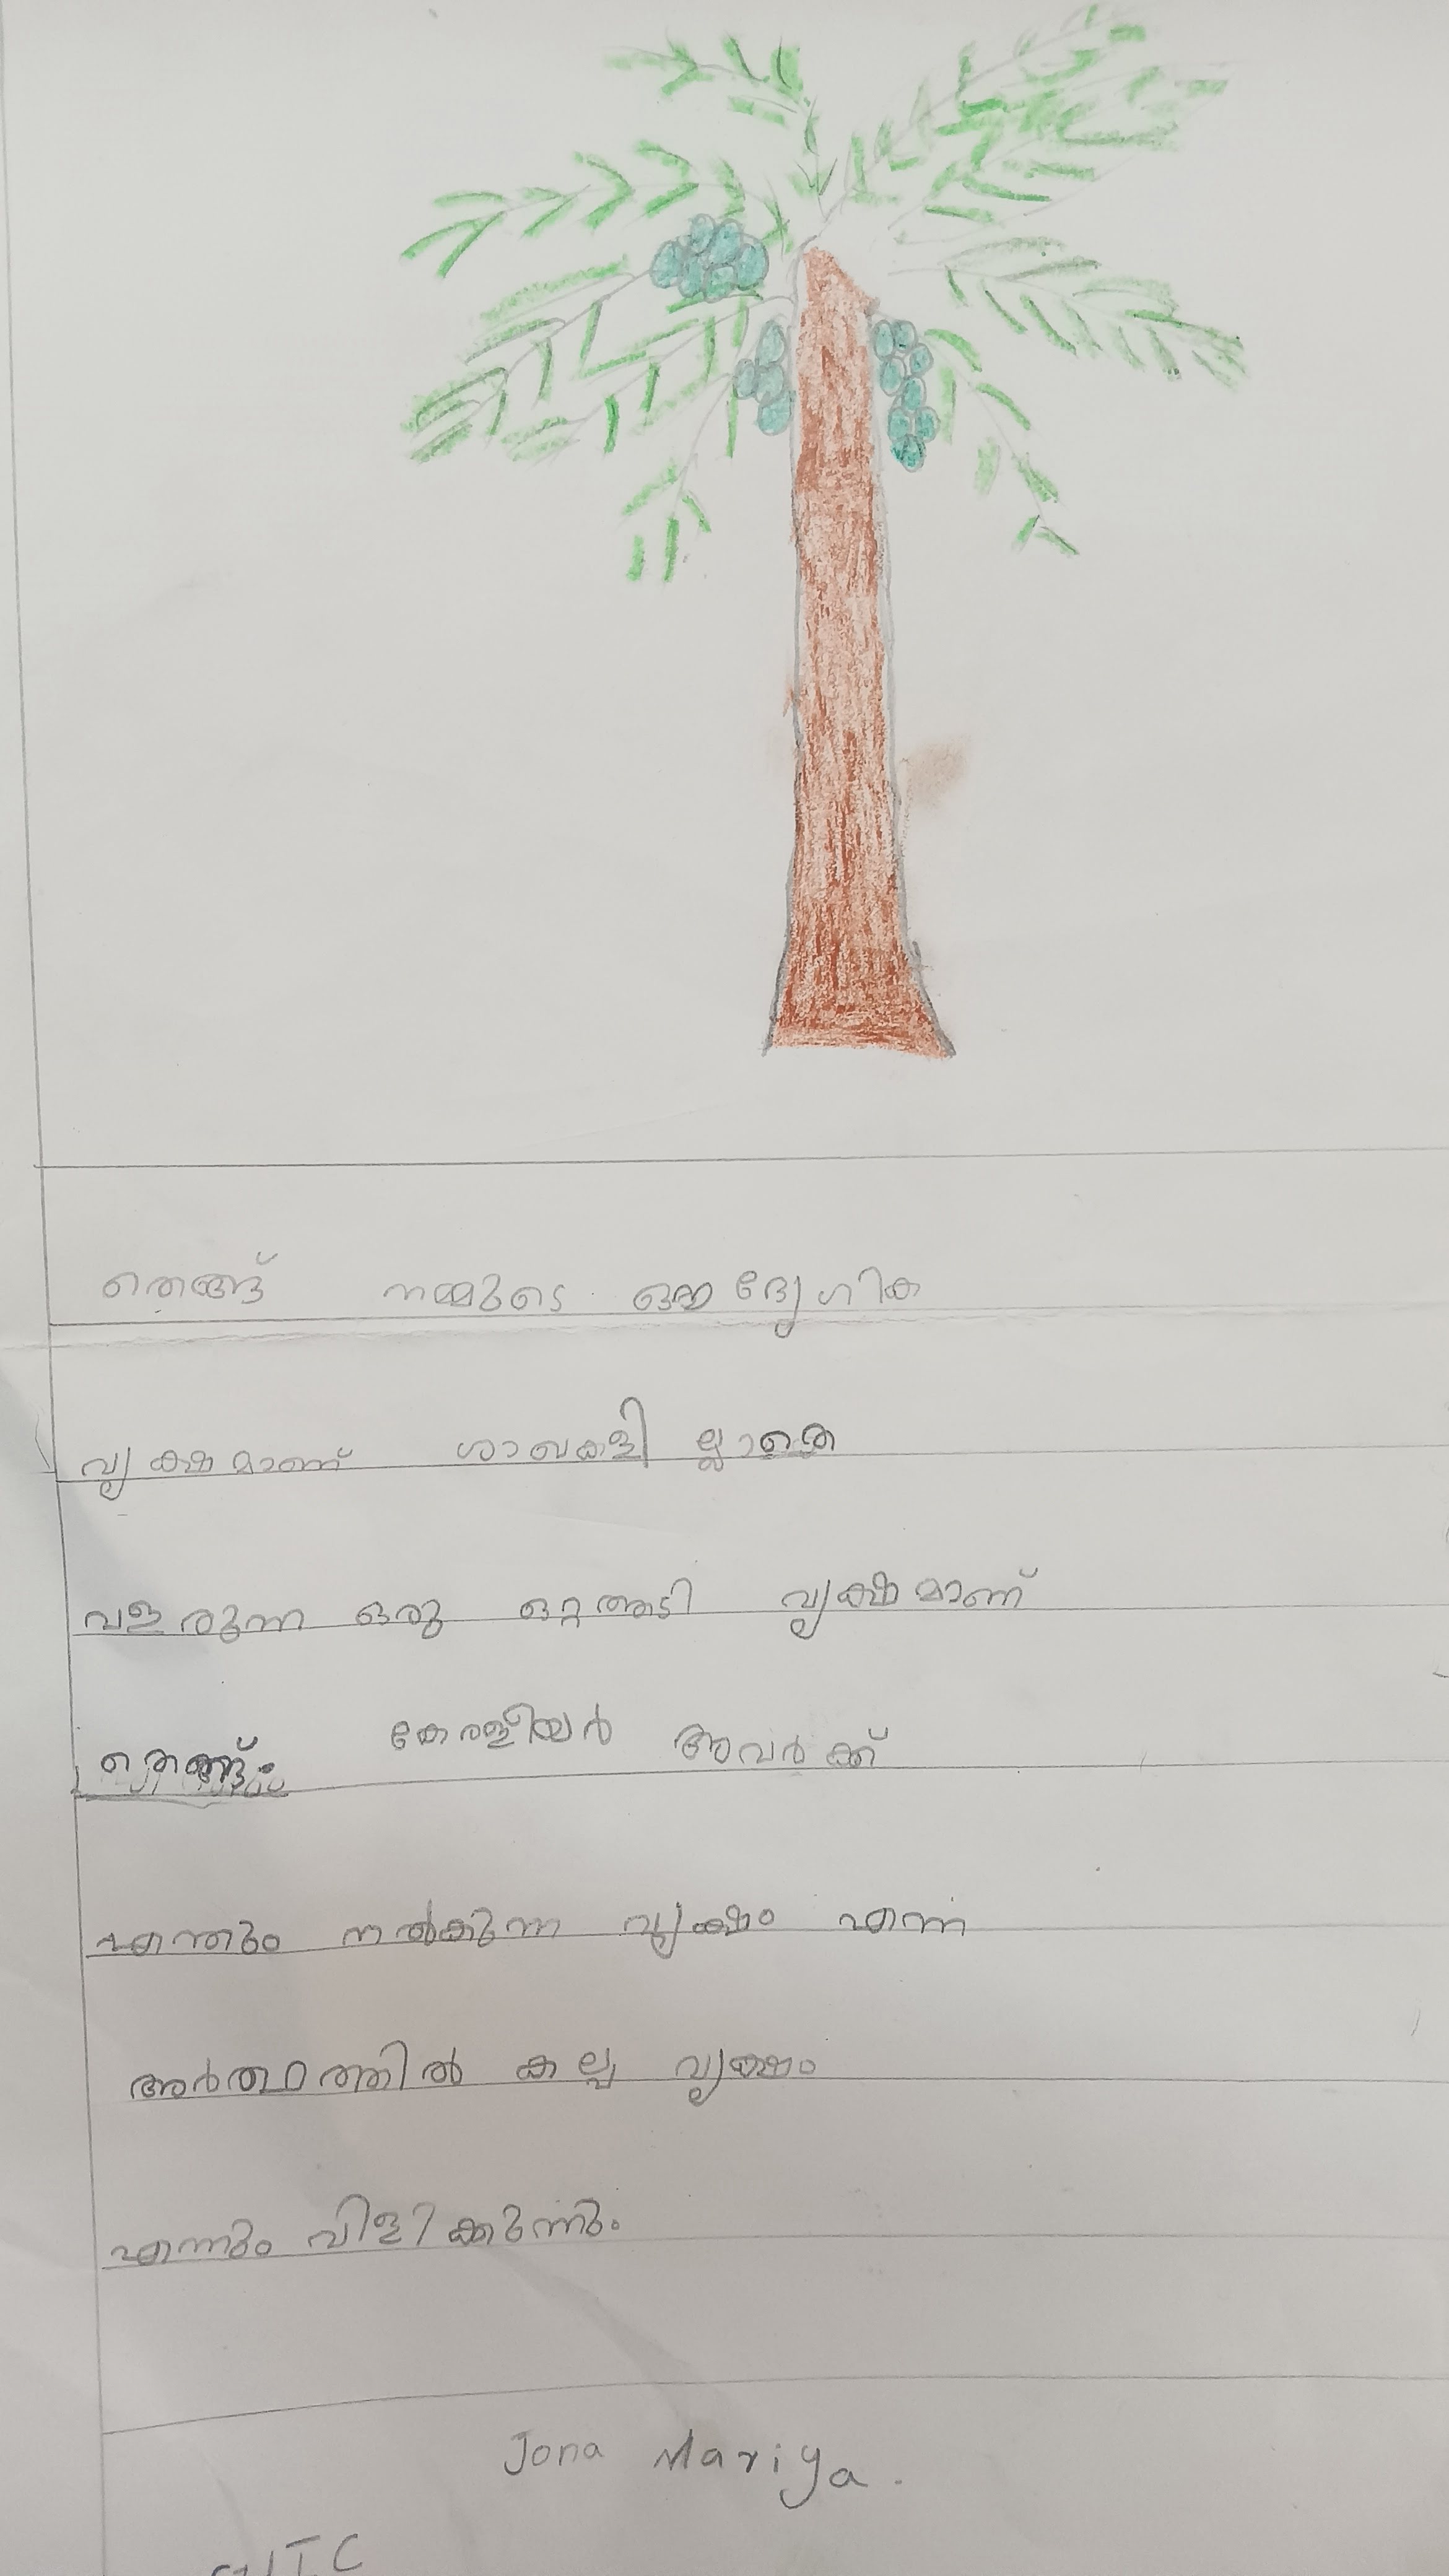 തെങ്ങ് നമ്മുടെ ഔദ്യോഗിക
വൃക്ഷമാണ് ശാഖകളി ല്ലാതെ
വളരുന്ന ഒരു ഒറ്റഅടി വൃക്ഷമാണ്
തെങ്ങ്. കേരളീയർ അവർക്ക്
എന്തും നൽകുന്ന വൃക്ഷം എന്ന
അർത്ഥത്തിൽ കല്പ വൃക്ഷം
എന്നും വിളിക്കുന്നും
Jona Mariya.